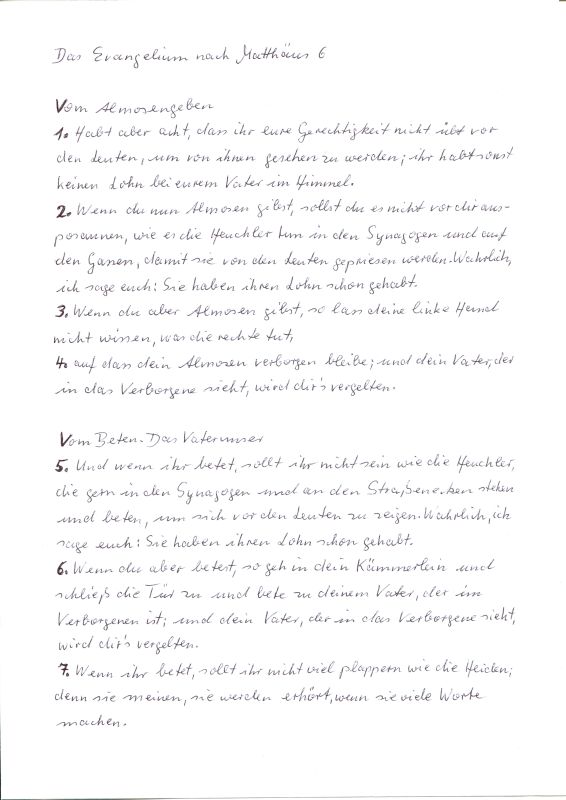 Das Evangelium nach Matthäus 6
Vom Almosengeben
1. Habt aber acht, dass ihr eure Gerechtigkeit nicht übt vor
den Leuten, um von ihnen gesehen zu werden; ihr habt sonst
keinen Lohn bei eurem Vater im Himmel.
2. Wenn du nun Almosen gibst, sollst du es nicht vor dir aus-
posaunen, wie es die Heuchler tun in den Synagogen und auf
den Gassen, damit sie von den Leuten gepriesen werden. Wahrlich,
ich sage euch: Sie haben ihren Lohn schon gehabt.
3. Wenn du aber Almosen gibst, so lass deine linke Hand
nicht wissen, was die rechte tut,
4. auf dass dein Almosen verborgen bleibe; und dein Vater, der
in das Verborgene sieht, wird dir's vergelten.
Vom Beten. Das Vaterunser
5. Und wenn ihr betet, sollt ihr nicht sein wie die Heuchler,
die gern in den Synagogen und an den Straßenecken stehen
und beten, um sich vor den Leuten zu zeigen. Wahrlich, ich
sage euch: Sie haben ihren Lohn schon gehabt.
6. Wenn du aber betest, so geh in dein Kämmerlein und
schließ die Tür zu und bete zu deinem Vater, der im
Verborgenen ist; und dein Vater, der in das Verborgene sieht,
wird dir's vergelten.
7. Wenn ihr betet, sollt ihr nicht viel plappern wie die Heiden;
denn sie meinen, sie werden erhört, wenn sie viele Worte
machen.